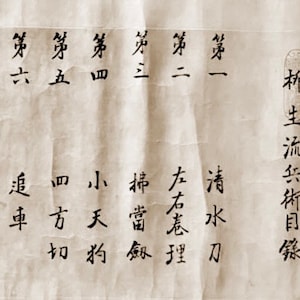 柳生流兵術目錄
第一 清水刀
第二 左右卷埋
第三 掃當劔
第四 小天狗
第五 四方切
第六 追車